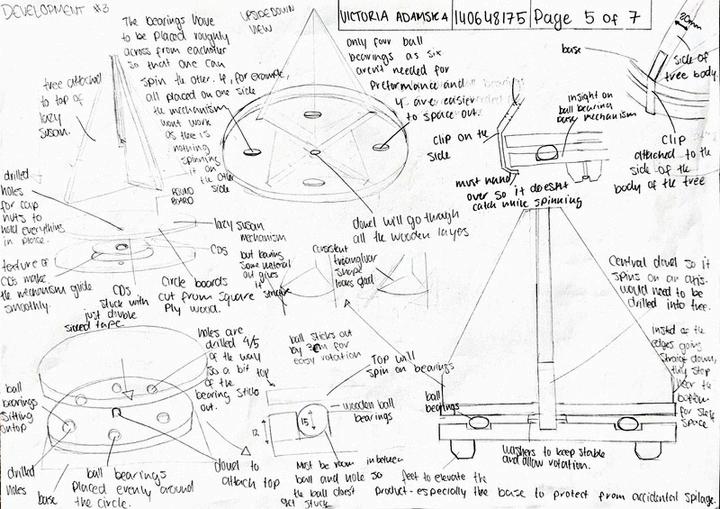 DEVELOPMENT #3
VICTORIA ADAMSKA
140648175
Page 5 of 7
The bearings have
to be placed roughly
across from eachother
so that one can
spin the other. If, for example,
all placed on one side
the mechanism
wont work
as there is
nothing
spinning
it on
the other
side
UPSIDEDOWN
VIEW
only four ball
bearings as six
arent needed for
Preformance and
4 are easier
to space out.
base
80mm
side of
tree body.
insight on
ball bearing
base mechanism
clip on the
side
Clip
attached to the
side of the
body of the tree
must hang
over so it doesnt
catch while spinning
tree attached
to top of
lazy
susan.
drilled
holes
for cap
nuts to
hold everything
in place.
ROUND
BOARD
lazy susan
mechanism
CDS
texture of
CDs make
the mechanism glide
smoothly.
CDs
stuck with
just double
sided tape.
Circle boards
cut from square
Ply wood.
but having
some material
out gives
it
structure
consistent
triangular
shape
looks good
dowel will go though
all the wooden layes
Central dowel so it
spins on an axis.
would need to be
drilled into tree.
insted of the
edges going
straight down,
they stop
near the
bottom
for
space
holes are
drilled 4/5
of the way
so a bit top
of the
bearing sticks
out.
ball sticks out
by 3mm for
easy rotation
Top will
spin on bearings
wooden ball
bearings
12
15
ball
bearings
sitting
on top
drilled
holes
base
ball bearings
placed evenly around
the circle.
dowel to
attach top
Must be room inbetween
ball and hole so
the ball doesnt
get stuck
ball
bearings
washers to keep stable
and allow rotation.
feet to elevate the
product - especially the base to protect from accidental spilage.